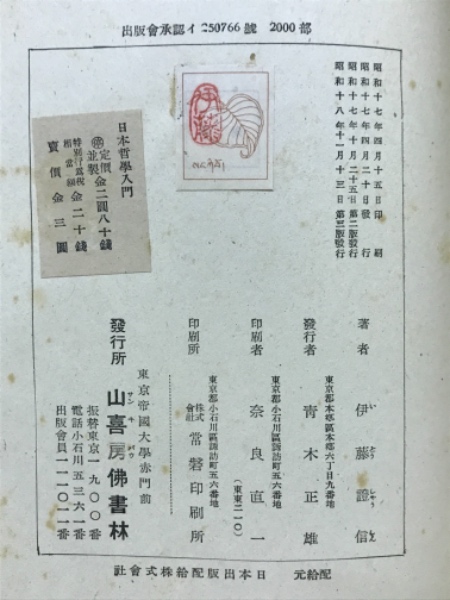 出版會承認イ250766號 2000部
昭和十七年四月十五日印刷
昭和十七年四月二十日發行
昭和十七年十月二十五日第二版發行
昭和十八年十一月十三日第三版發行
伊藤
日本哲學入門
定價金二圓八十錢
並製
特別行爲税相當額 金二十錢
賣價金三圓
著者 伊藤證信
いとうしょうしん
東京都本鄕區本鄕六丁目九番地
發行者 靑木正雄
東京都小石川區諏訪町五六番地
印刷者 奈良直一
(東東二一〇)
東京都小石川區諏訪町五六番地
印刷所 株式會社 常磐印刷所
東京帝國大學赤門前
發行所 山喜房佛書林
サンキバウ
振替東京一九〇〇番
電話小石川五三六一番
出版會員一一一〇一一番
配給元 日本出版配給株式會社